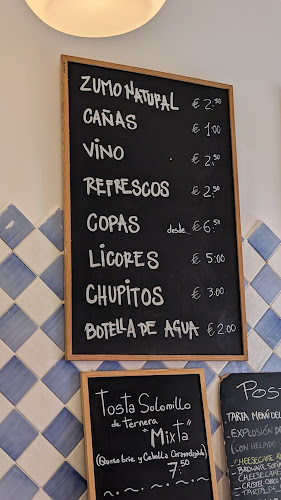 ZUMO NATURAL € 2.50
CAÑAS € 1.00
VINO € 2.50
REFRESCOS € 2.50
COPAS desde € 6.50
LICORES € 5.00
CHUPITOS € 3.00
BOTELLA DE AGUA € 2.00
Tosta Solomillo
de Ternera
"Mixta"
(Queso brie y Cebolla Caramelizada)
7,50
POST
TARTA MENÚ DEL
EXPLOSIÓN DE
(CON HELADO
CHEESECAKE
BROWNIE
CHEESECAKE
TARTA DE